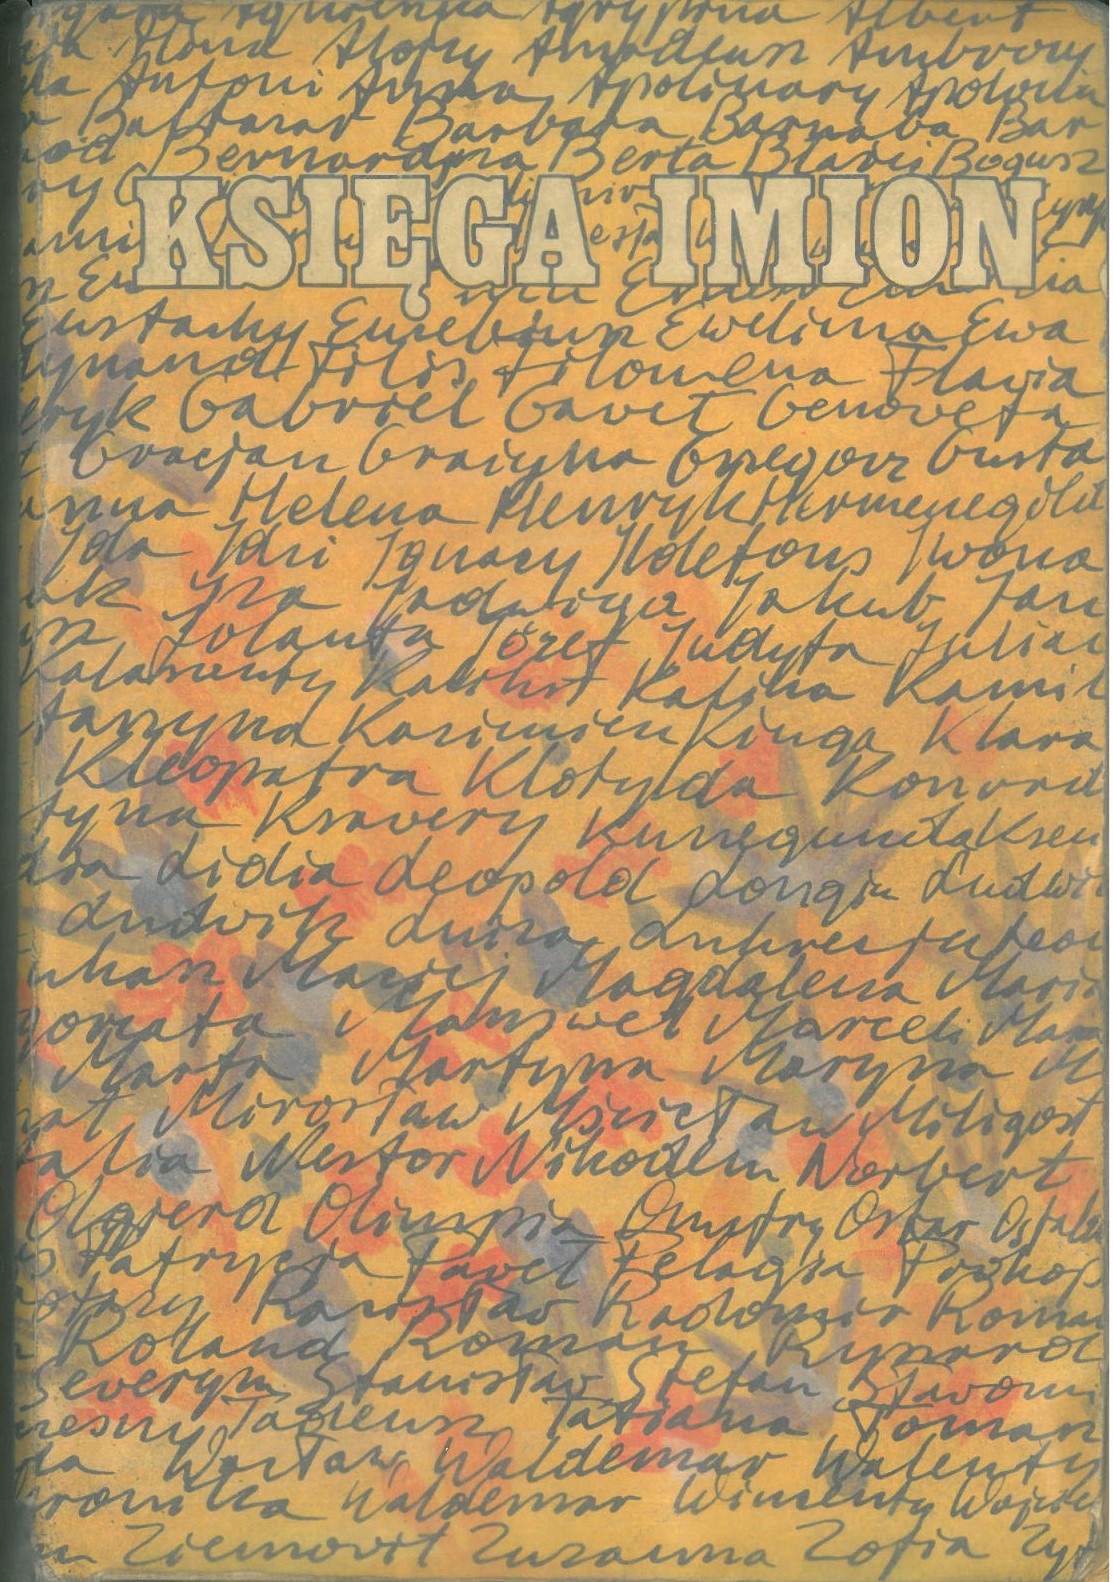 Agrypina Albert
Ilona Alojzy Amadeusz Ambroży
Antoni Anna Apolinary Apolonia
Baltazar Barbara Barnaba Bar
Bernardyna Berta Błażej Bogusz
KSIĘGA IMION
Eustachy Euzebiusz Ewelina Ewa
dynand Filis Filomena Flawia
eryk Gabriel Gaweł Genowefa
Gracjan Grażyna Grzegorz Gusta
anna Helena Henryk Hermenegild
Ida Idzi Ignacy Ildefons Iwona
Iza Jadwiga Jakub Jan
Jolanta Józef Judyta Julian
Kalasanty Kalikst Kalina Kamil
tarzyna Kazimierz Kinga Klara
Kleopatra Klotylda Konrad
tyna Ksawery Kunegunda Ksen
Lidia Leopold Longin Ludwi
Ludwik Luiza Lukrecja Leon
ukasz Maciej Magdalena Maria
gorzata Manswet Marceli Mar
Marta Martyna Maryna M
Mirosław Mścisław Miligost
talia Nestor Nikodem Norbert
Olgierd Olimpia Onufry Oskar
Patrycja Paweł Pelagia Prokop
Racisław Radomir Roman
Roland Roman Ryszard
Seweryn Stanisław Stefan Sławomi
Tadeusz Tatiana Tomasz
Wacław Waldemar Walenty
eronika Waldemar Wincenty Wojcie
Ziemowit Zuzanna Zofia Zyg